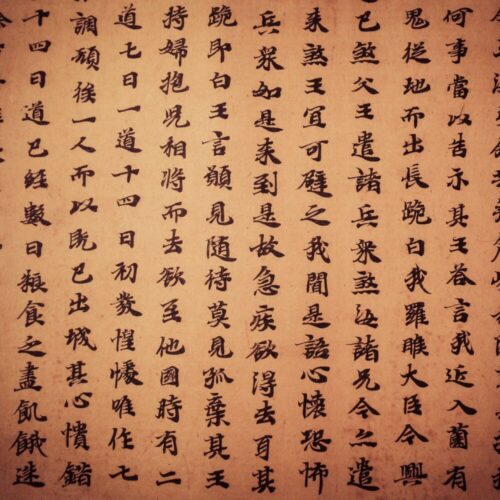 何事當以告示其王荅言我近入薗有
鬼從地而出長跪白我羅睺大臣今興
已煞父王遣諸兵衆煞汝諸兄今亦遣
来煞王宜可避之我聞是語心懷恐怖
兵衆如是来到是故急疾欲得去耳其
跪即白王言願見随侍莫見孤棄其王
持婦抱兒相将而去欲至他國時有二
道七日一道十四日初發惶懅唯作七
調頋俟一人而以既已出城其心憒錯
十四日道已經數日粮食乏盡飢餓迷